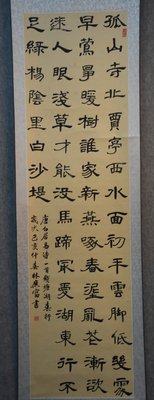 孤山寺北賈亭西水面初平雲脚低幾處
早鶯爭暖樹誰家新燕啄春泥亂花漸欲
迷人眼淺草才能没馬蹄最愛湖東行不
足綠楊陰里白沙堤
唐白居易詩一首錢塘湖春行
歲次己亥仲春林富書